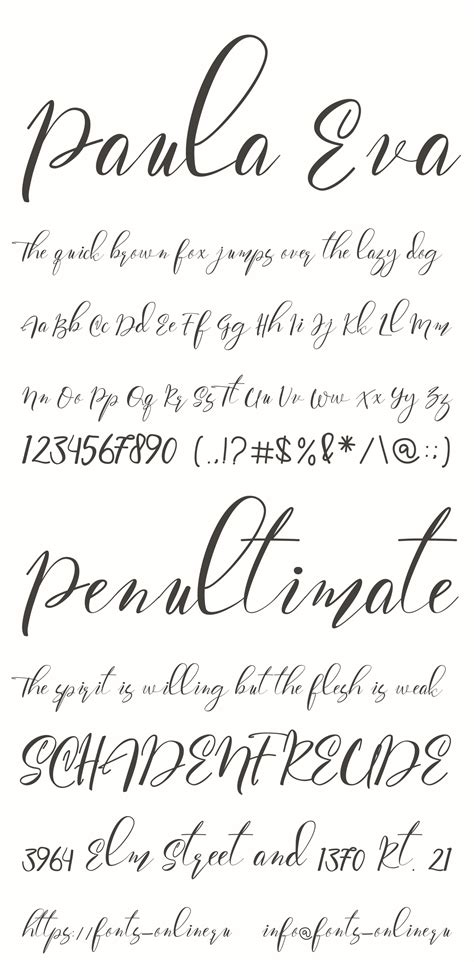 Paula Eva
The quick brown fox jumps over the lazy dog
Aa Bb Cc Dd Ee Ff Gg Hh Ii Jj Kk Ll Mm
Nn Oo Pp Qq Rr Ss Tt Uu Vv Ww Xx Yy Zz
1234567890 (.,!?#$%&*/\@:;)
Penultimate
The spirit is willing but the flesh is weak
SCHADENFREUDE
3964 Elm Street and 1370 Rt. 21
https://fonts-online.ru info@fonts-online.ru